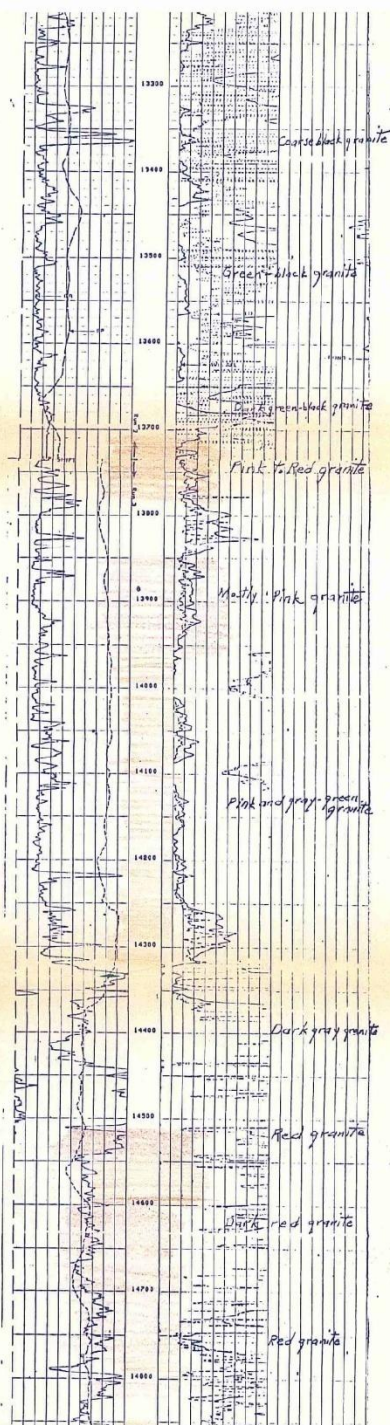 13300
Coarse black granite
13400
13500
Green-black granite
13600
Dark green-black granite
13700
Pink to Red granite
13800
13900
Mostly Pink granite
14000
14100
Pink and gray-green
granite
14200
14300
14400
Dark gray granite
14500
Red granite
14600
Dark red granite
14700
Red granite
14800